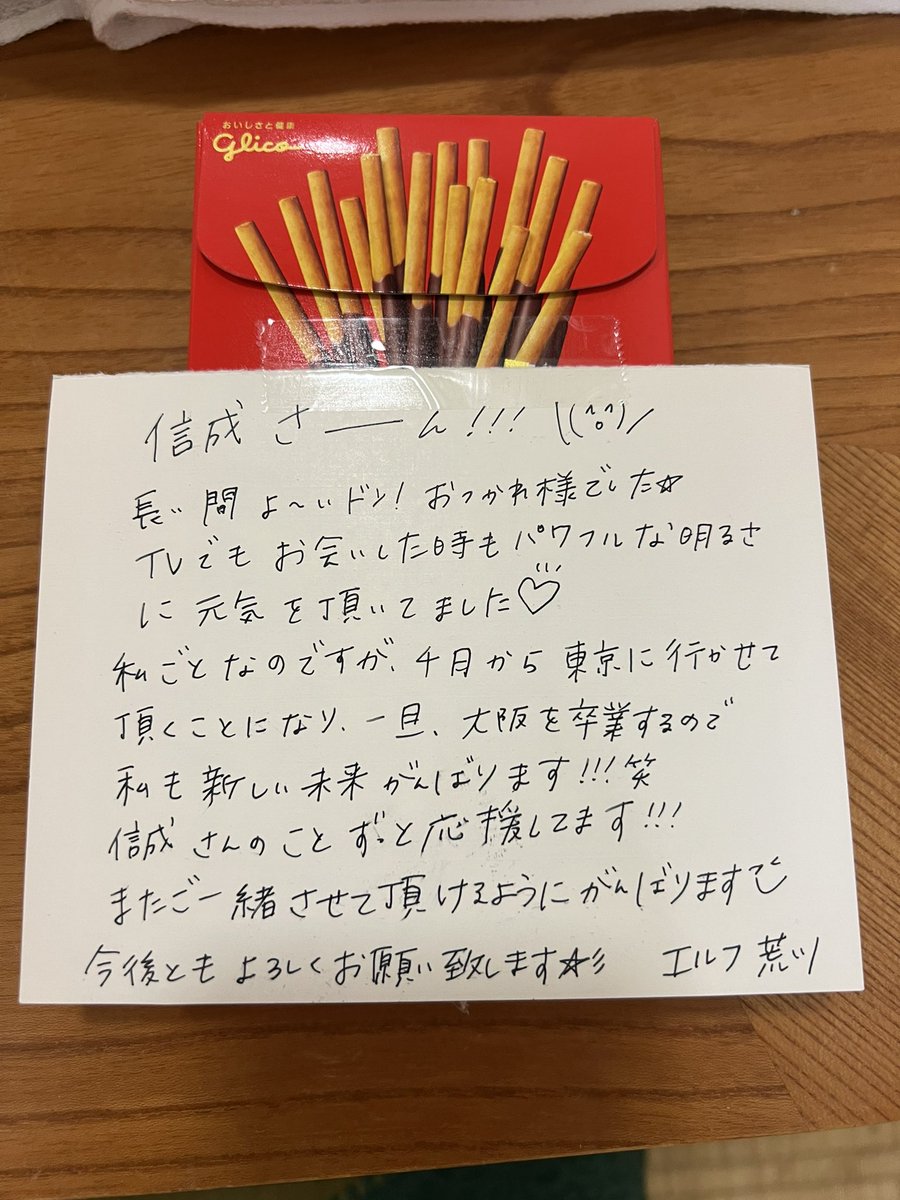 おいしさと健康
glico
信成さーーん!!! \(^o^)/
長い間よ〜いドン!おつかれ様でした☆
TVでもお会いした時もパワフルな明るさ
に元気を頂いてました♡
私ごとなのですが、4月から東京に行かせて
頂くことになり、一旦、大阪を卒業するので
私も新しい未来がんばります!!!笑
信成さんのことずっと応援してます!!!
またご一緒させて頂けるようにがんばります
今後ともよろしくお願い致します☆彡 エルフ荒川